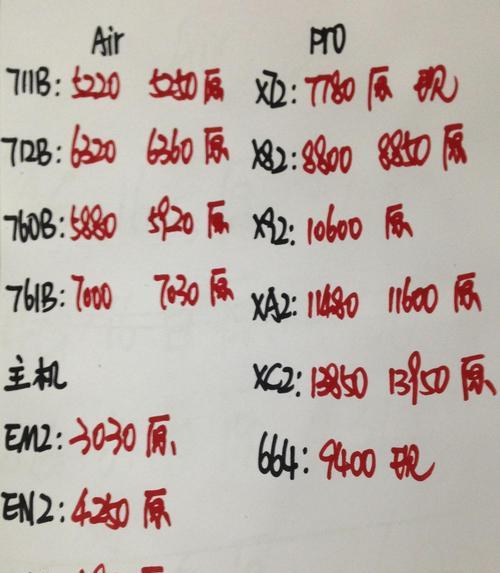 Air
711B: 5220 5250 原
712B: 6320 6360 原
760B: 5880 5920 原
761B: 7000 7030 原
主机
EM2: 3030 原
EN2: 4250 原
Pro
X72: 7780 原 现
X82: 8800 8850 原
X92: 10600 原
XA2: 11480 11600 原
XC2: 13850 13950 原
664: 9400 现